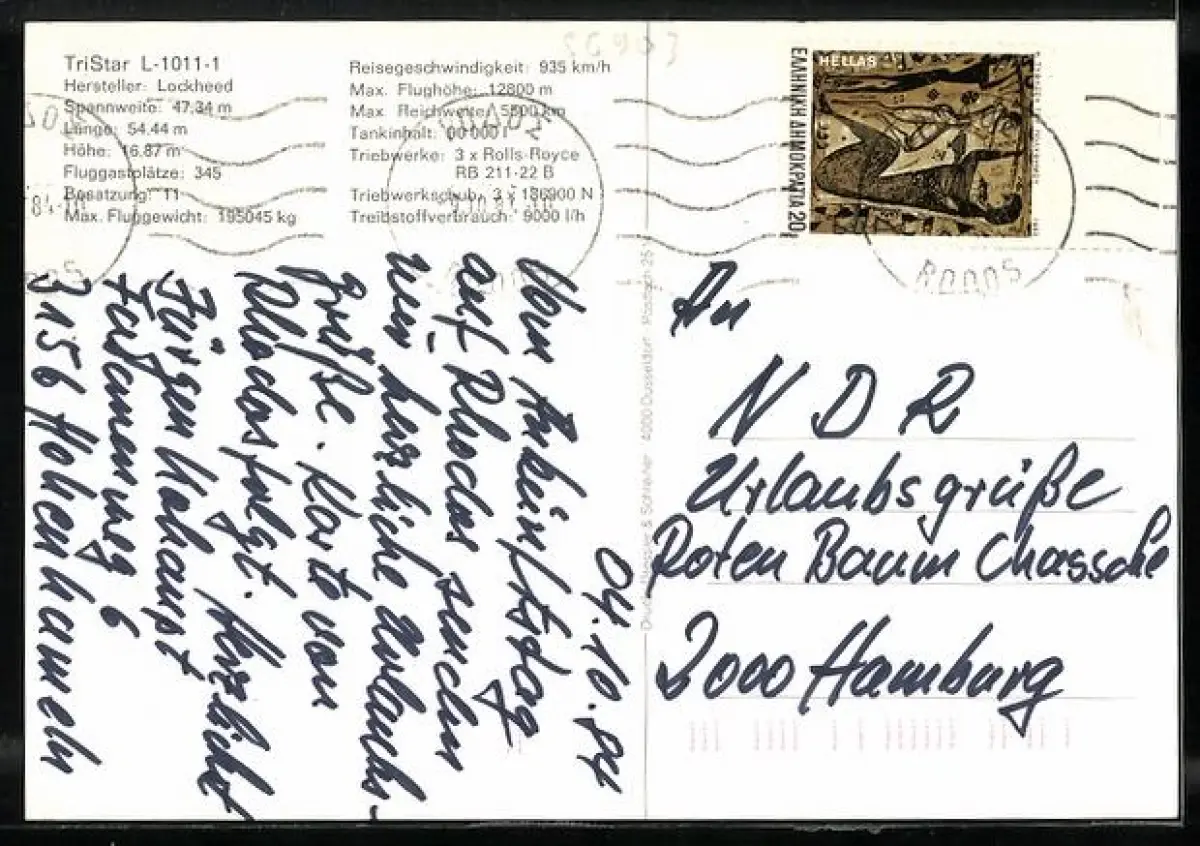 TriStar L-1011-1
Hersteller: Lockheed
Spannweite: 47,34 m
Länge: 54.44 m
Höhe: 16.87 m
Fluggastplätze: 345
Besatzung: 11
Max. Fluggewicht: 195045 kg
Reisegeschwindigkeit: 935 km/h
Max. Flughöhe: 12800 m
Max. Reichweite: 5500 km
Tankinhalt: 000 l
Triebwerke: 3 x Rolls-Royce
RB 211-22 B
Triebwerkschub: 3 x 186900 N
Treibstoffverbrauch: 9000 l/h
HELLAS
ΕΛΛΗΝΙΚΗ ΔΗΜΟΚΡΑΤΙΑ 20
04.10.84
Vom Ankunftstag
auf Rhodos senden
wir herzliche Urlaubs-
grüße. Karte von
Rhodos folgt. Herzlichst
Jürgen
Fasanenweg 6
3156 Hohenhameln
4000 Düsseldorf
An
NDR
Urlaubsgrüße
Roten Baum Chassche
2000 Hamburg